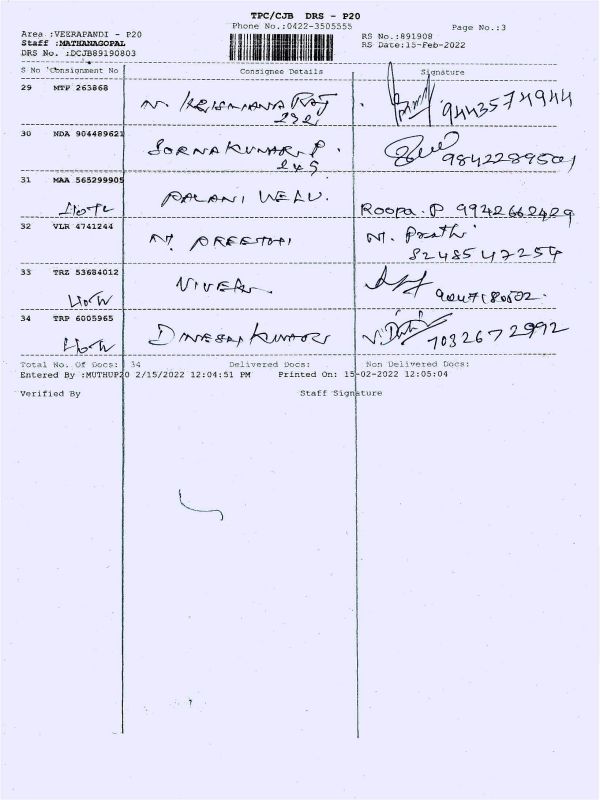 TPC/CJB DRS - P20
Phone No.:0422-3505555
Page No.:3
Area :VEERAPANDI - P20
RS No.:891908
Staff :MATHANAGOPAL
RS Date:15-Feb-2022
DRS No. :DCJB89190803
S No Consignment No Consignee Details Signature
29 MTP 263868 N. KRISHNANA RAJ 9443574944
30 NDA 904489621 SORNA KUMAR. P. 9842289501
245
31 MAA 565299905 PALANI VELU. Roopa. P 9942662429
32 VLR 4741244 M. PREETHI M. Preethi
8248547254
33 TRZ 53684012 VIVEK 9047180502.
34 TRP 6005965 DINESH KUMAR 7032672992
Total No. Of Docs: 34 Delivered Docs: Non Delivered Docs:
Entered By :MUTHUP20 2/15/2022 12:04:51 PM Printed On: 15-02-2022 12:05:04
Verified By Staff Signature